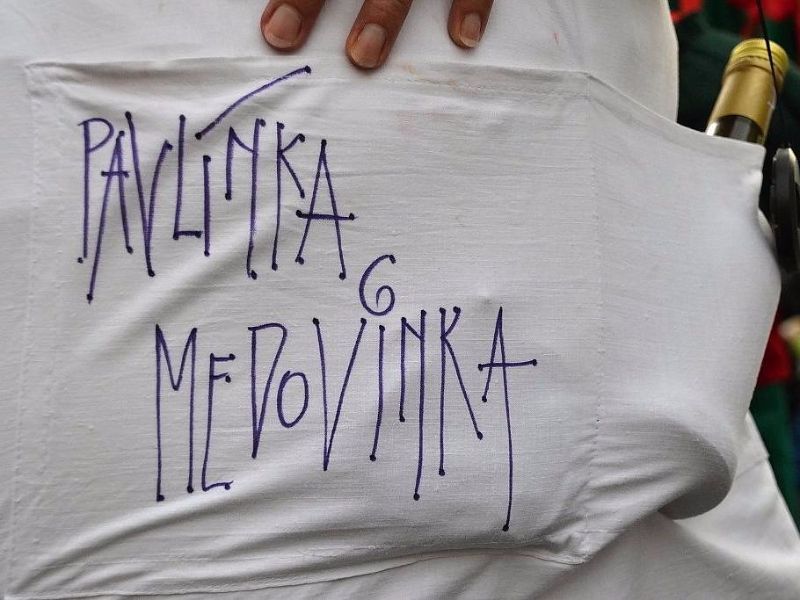 PAVLÍNKA
6
MEDOVINKA